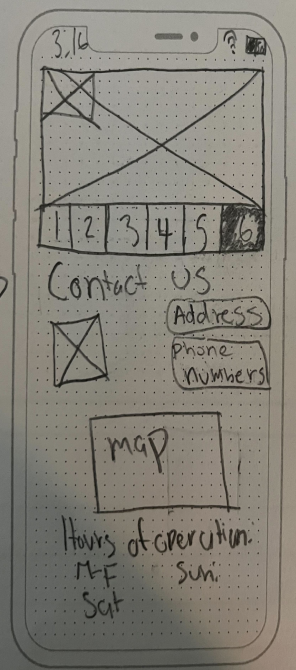 3:16
1 2 3 4 5 6
Contact US
Address
phone
numbers
map
Hours of operation:
M-F Sun.
Sat